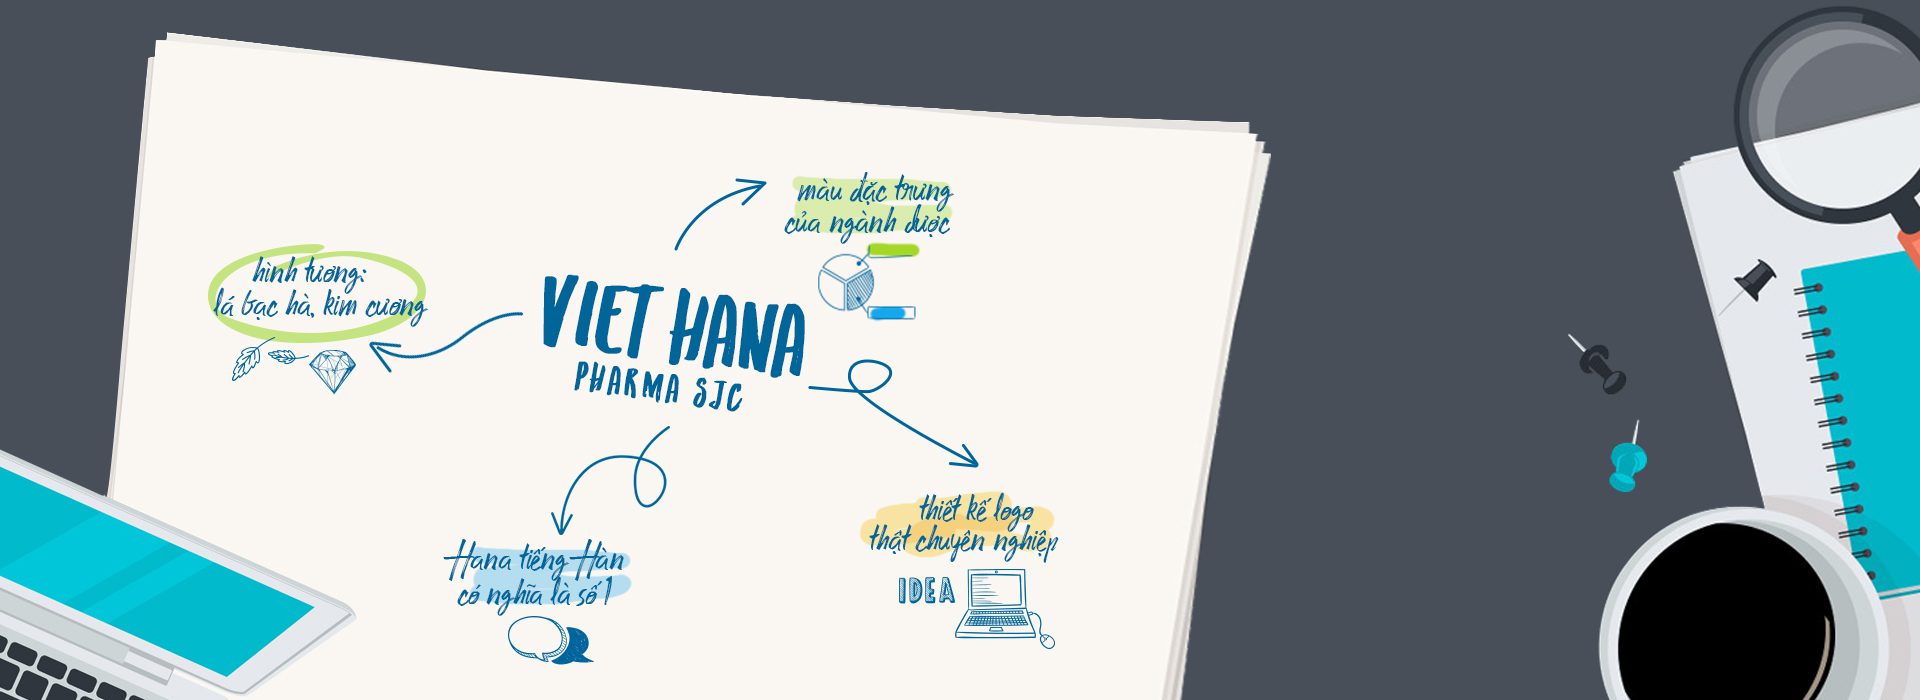 màu đặc trưng
của ngành dược
hình tương:
lá bạc hà, kim cương
VIET HANA
PHARMA SJC
thiết kế logo
thật chuyên nghiệp
IDEA
Hana tiếng Hàn
có nghĩa là số 1